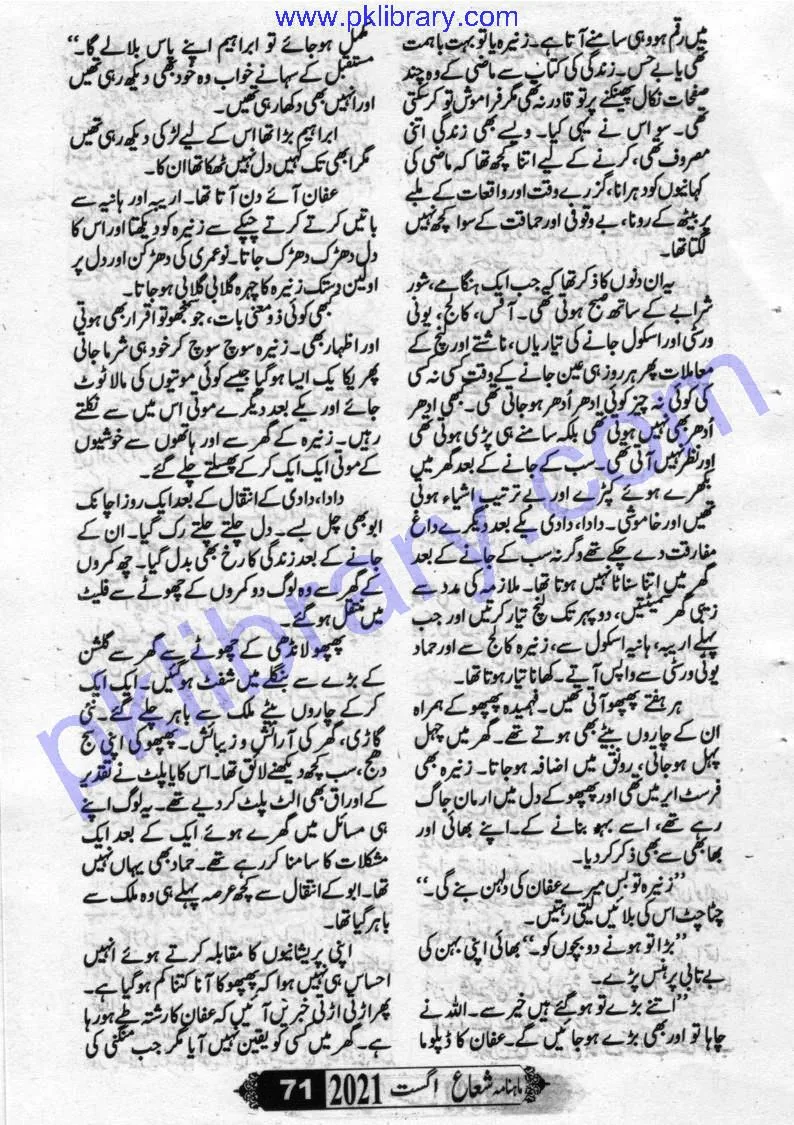 www.pklibrary.com
میں رقم ہو وہی سامنے آتا ہے۔ زنیرہ یا تو بہت با ہمت
تھی یا بے حس۔ زندگی کی کتاب سے ماضی کے وہ چند
صفحات نکال پھینکنے پر تو قادر نہ تھی مگر فراموش تو کر سکتی
تھی۔ سو اس نے یہی کیا۔ ویسے بھی زندگی اتنی
مصروف تھی، کرنے کے لیے اتنا کچھ تھا کہ ماضی کی
کہانیوں کو دہرانا، گزرے وقت اور واقعات کے ملبے
پر بیٹھ کے رونا، بے وقوفی اور حماقت کے سوا کچھ نہیں
لگتا تھا۔
یہ ان دنوں کا ذکر تھا کہ جب ایک ہنگامے، شور
شرابے کے ساتھ صبح ہوتی تھی۔ آفس، کالج، یونی
ورسٹی اور اسکول جانے کی تیاریاں، ناشتے اور لنچ کے
معاملات پھر ہر روز ہی عین جانے کے وقت کسی نہ کسی
کی کوئی نہ چیز کوئی ادھر اُدھر ہو جاتی تھی۔ کبھی ادھر
اُدھر بھی نہیں ہوتی تھی بلکہ سامنے ہی پڑی ہوتی تھی
اور نظر نہیں آتی تھی۔ سب کے جانے کے بعد گھر میں
بکھرے ہوئے کپڑے اور بے ترتیب اشیاء ہوتی
تھیں اور خاموشی۔ دادا، دادی یکے بعد دیگرے داغ
مفارقت دے چکے تھے وگرنہ سب کے جانے کے بعد
گھر میں اتنا سناٹا نہیں ہوتا تھا۔ ملازمہ کی مدد سے
زیبی گھر سمیٹتیں، دوپہر تک لنچ تیار کرتیں اور جب
پہلے اریبہ، ہانیہ اسکول سے، زنیرہ کالج سے اور حماد
یونی ورسٹی سے واپس آتے۔ کھانا تیار ہوتا تھا۔
ہر ہفتے پھپھو آتی تھیں۔ فہمیدہ پھپھو کے ہمراہ
ان کے چاروں بیٹے بھی ہوتے تھے۔ گھر میں چہل
پہل ہو جاتی، رونق میں اضافہ ہو جاتا۔ زنیرہ بھی
فرسٹ ایر میں تھی اور پھپھو کے دل میں ارمان جاگ
رہے تھے، اسے بہو بنانے کے۔ اپنے بھائی اور
بھابھی سے بھی ذکر کر دیا۔
”زنیرہ تو بس میرے عفان کی دلہن بنے گی۔“
چٹا چٹ اس کی بلائیں لیتی رہتیں۔
”بڑا تو ہونے دو بچوں کو۔“ بھائی اپنی بہن کی
بے تابی پر ہنس پڑے۔
”اتنے بڑے تو ہو گئے ہیں خیر سے۔ اللہ نے
چاہا تو اور بھی بڑے ہو جائیں گے۔ عفان کا ڈپلوما
مکمل ہو جائے تو ابراہیم اپنے پاس بلا لے گا۔“
مستقبل کے سہانے خواب وہ خود بھی دیکھ رہی تھیں
اور انہیں بھی دکھا رہی تھیں۔
ابراہیم بڑا تھا اس کے لیے لڑکی دیکھ رہی تھیں
مگر ابھی تک کہیں دل نہیں ٹھکا تھا ان کا۔
عفان آئے دن آتا تھا۔ اریبہ اور ہانیہ سے
باتیں کرتے کرتے چپکے سے زنیرہ کو دیکھتا اور اس کا
دل دھڑک دھڑک جاتا۔ نوعمری کی دھڑکن اور دل پر
اولین دستک زنیرہ کا چہرہ گلابی گلابی ہو جاتا۔
کبھی کوئی ذو معنی بات، جو سمجھو تو اقرار بھی ہوتی
اور اظہار بھی۔ زنیرہ سوچ سوچ کر خود ہی شرما جاتی
پھر یکا یک ایسا ہو گیا جیسے کوئی موتیوں کی مالا ٹوٹ
جائے اور یکے بعد دیگرے موتی اس میں سے نکلتے
رہیں۔ زنیرہ کے گھر سے اور ہاتھوں سے خوشیوں
کے موتی ایک ایک کر کے پھسلتے چلے گئے۔
دادا، دادی کے انتقال کے بعد ایک روز اچانک
ابو بھی چل بسے۔ دل چلتے چلتے رک گیا۔ ان کے
جانے کے بعد زندگی کا رخ بھی بدل گیا۔ چھ کمروں
کے گھر سے وہ لوگ دو کمروں کے چھوٹے سے فلیٹ
میں منتقل ہو گئے۔
پھپھو لانڈھی کے چھوٹے سے گھر سے گلشن
کے بڑے سے بنگلے میں شفٹ ہو گئیں۔ ایک ایک
کر کے چاروں بیٹے ملک سے باہر چلے گئے۔ نئی
گاڑی، گھر کی آرائش و زیبائش۔ پھپھو کی اپنی سج
دھج، سب کچھ دیکھنے لائق تھا۔ اس کایا پلٹ نے تقدیر
کے اوراق بھی الٹ پلٹ کر دیے تھے۔ یہ لوگ اپنے
ہی مسائل میں گھرے ہوئے ایک کے بعد ایک
مشکلات کا سامنا کر رہے تھے۔ حماد بھی یہاں نہیں
تھا۔ ابو کے انتقال سے کچھ عرصہ پہلے ہی وہ ملک سے
باہر گیا تھا۔
اپنی پریشانیوں کا مقابلہ کرتے ہوئے انہیں
احساس ہی نہیں ہوا کہ پھپھو کا آنا کتنا کم ہو گیا ہے۔
پھر اڑتی اڑتی خبریں آئیں کہ عفان کا رشتہ طے ہو رہا
ہے۔ گھر میں کسی کو یقین نہیں آیا مگر جب منگنی کی
ماہنامہ شعاع اگست 2021 71
pklibrary.com